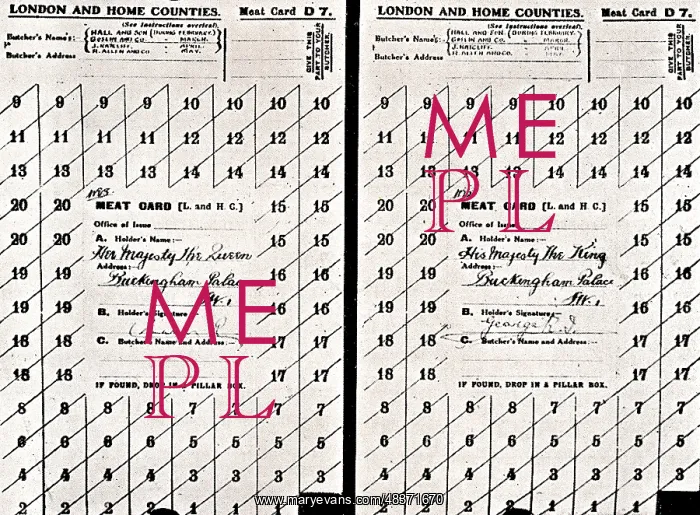 LONDON AND HOME COUNTIES. Meat Card D 7.
(See Instructions overleaf.)
Butcher's Name:
HALL AND SON (DURING FEBRUARY.
GOSLIN AND CO. - MARCH.
J. RATCLIFF. - APRIL.
R. ALLEN AND CO. - MAY.
Butcher's Address
GIVE THIS PART TO YOUR BUTCHER.
9 9 9 9 10 10 10 10
11 11 11 11 12 12 12 12
13 13 13 13 14 14 14 14
20 20 MEAT CARD [L. and H. C.] 15 15
Office of Issue
20 20 A. Holder's Name:— 15 15
Her Majesty The Queen
19 19 Address:— 16 16
Buckingham Palace
W. 1
19 19 B. Holder's Signature 16 16
18 18 C. Butcher's Name and Address:— 17 17
18 18 17 17
IF FOUND, DROP IN A PILLAR BOX.
8 8 8 8 7 7 7 7
6 6 6 6 5 5 5 5
4 4 4 4 3 3 3 3
2 2 2 2
LONDON AND HOME COUNTIES. Meat Card D 7.
(See Instructions overleaf.)
Butcher's Name:
HALL AND SON. (DURING FEBRUARY.
GOSLIN AND CO. - MARCH.
J. RATCLIFF. - APRIL.
R. ALLEN AND CO. - MAY.
Butcher's Address
GIVE THIS PART TO YOUR BUTCHER.
9 9 9 9 10 10 10 10
11 11 11 11 12 12 12 12
13 13 13 13 14 14 14 14
20 20 MEAT CARD [L. and H. C.] 15 15
Office of Issue
20 20 A. Holder's Name:— 15 15
His Majesty The King
19 19 Address:— 16 16
Buckingham Palace
W. 1.
19 19 B. Holder's Signature 16 16
George R.I.
18 18 C. Butcher's Name and Address:— 17 17
18 18 17 17
IF FOUND, DROP IN A PILLAR BOX.
8 8 8 8 7 7 7 7
6 6 6 6 5 5 5 5
4 4 4 4 3 3 3 3
2 2 2 2
ME
PL
ME
PL
www.maryevans.com/48871670